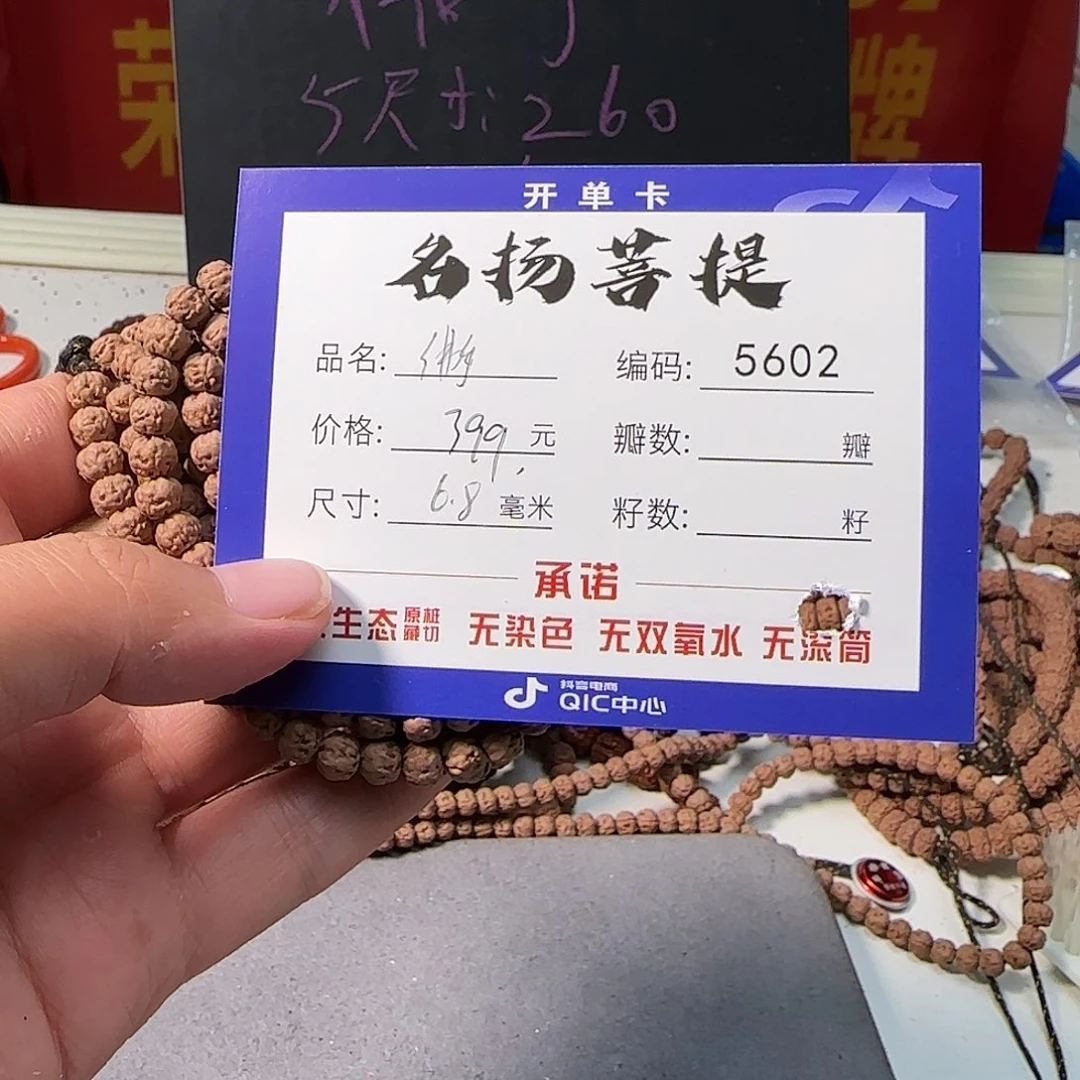 荣
牌
5尺寸:260
开单卡
名扬菩提
品名:
编码: 5602
价格: 399 元
瓣数: 瓣
尺寸: 6.8 毫米
籽数: 籽
承诺
生态 原桩藏切 无染色 无双氧水 无滚筒
抖音电商
QIC中心